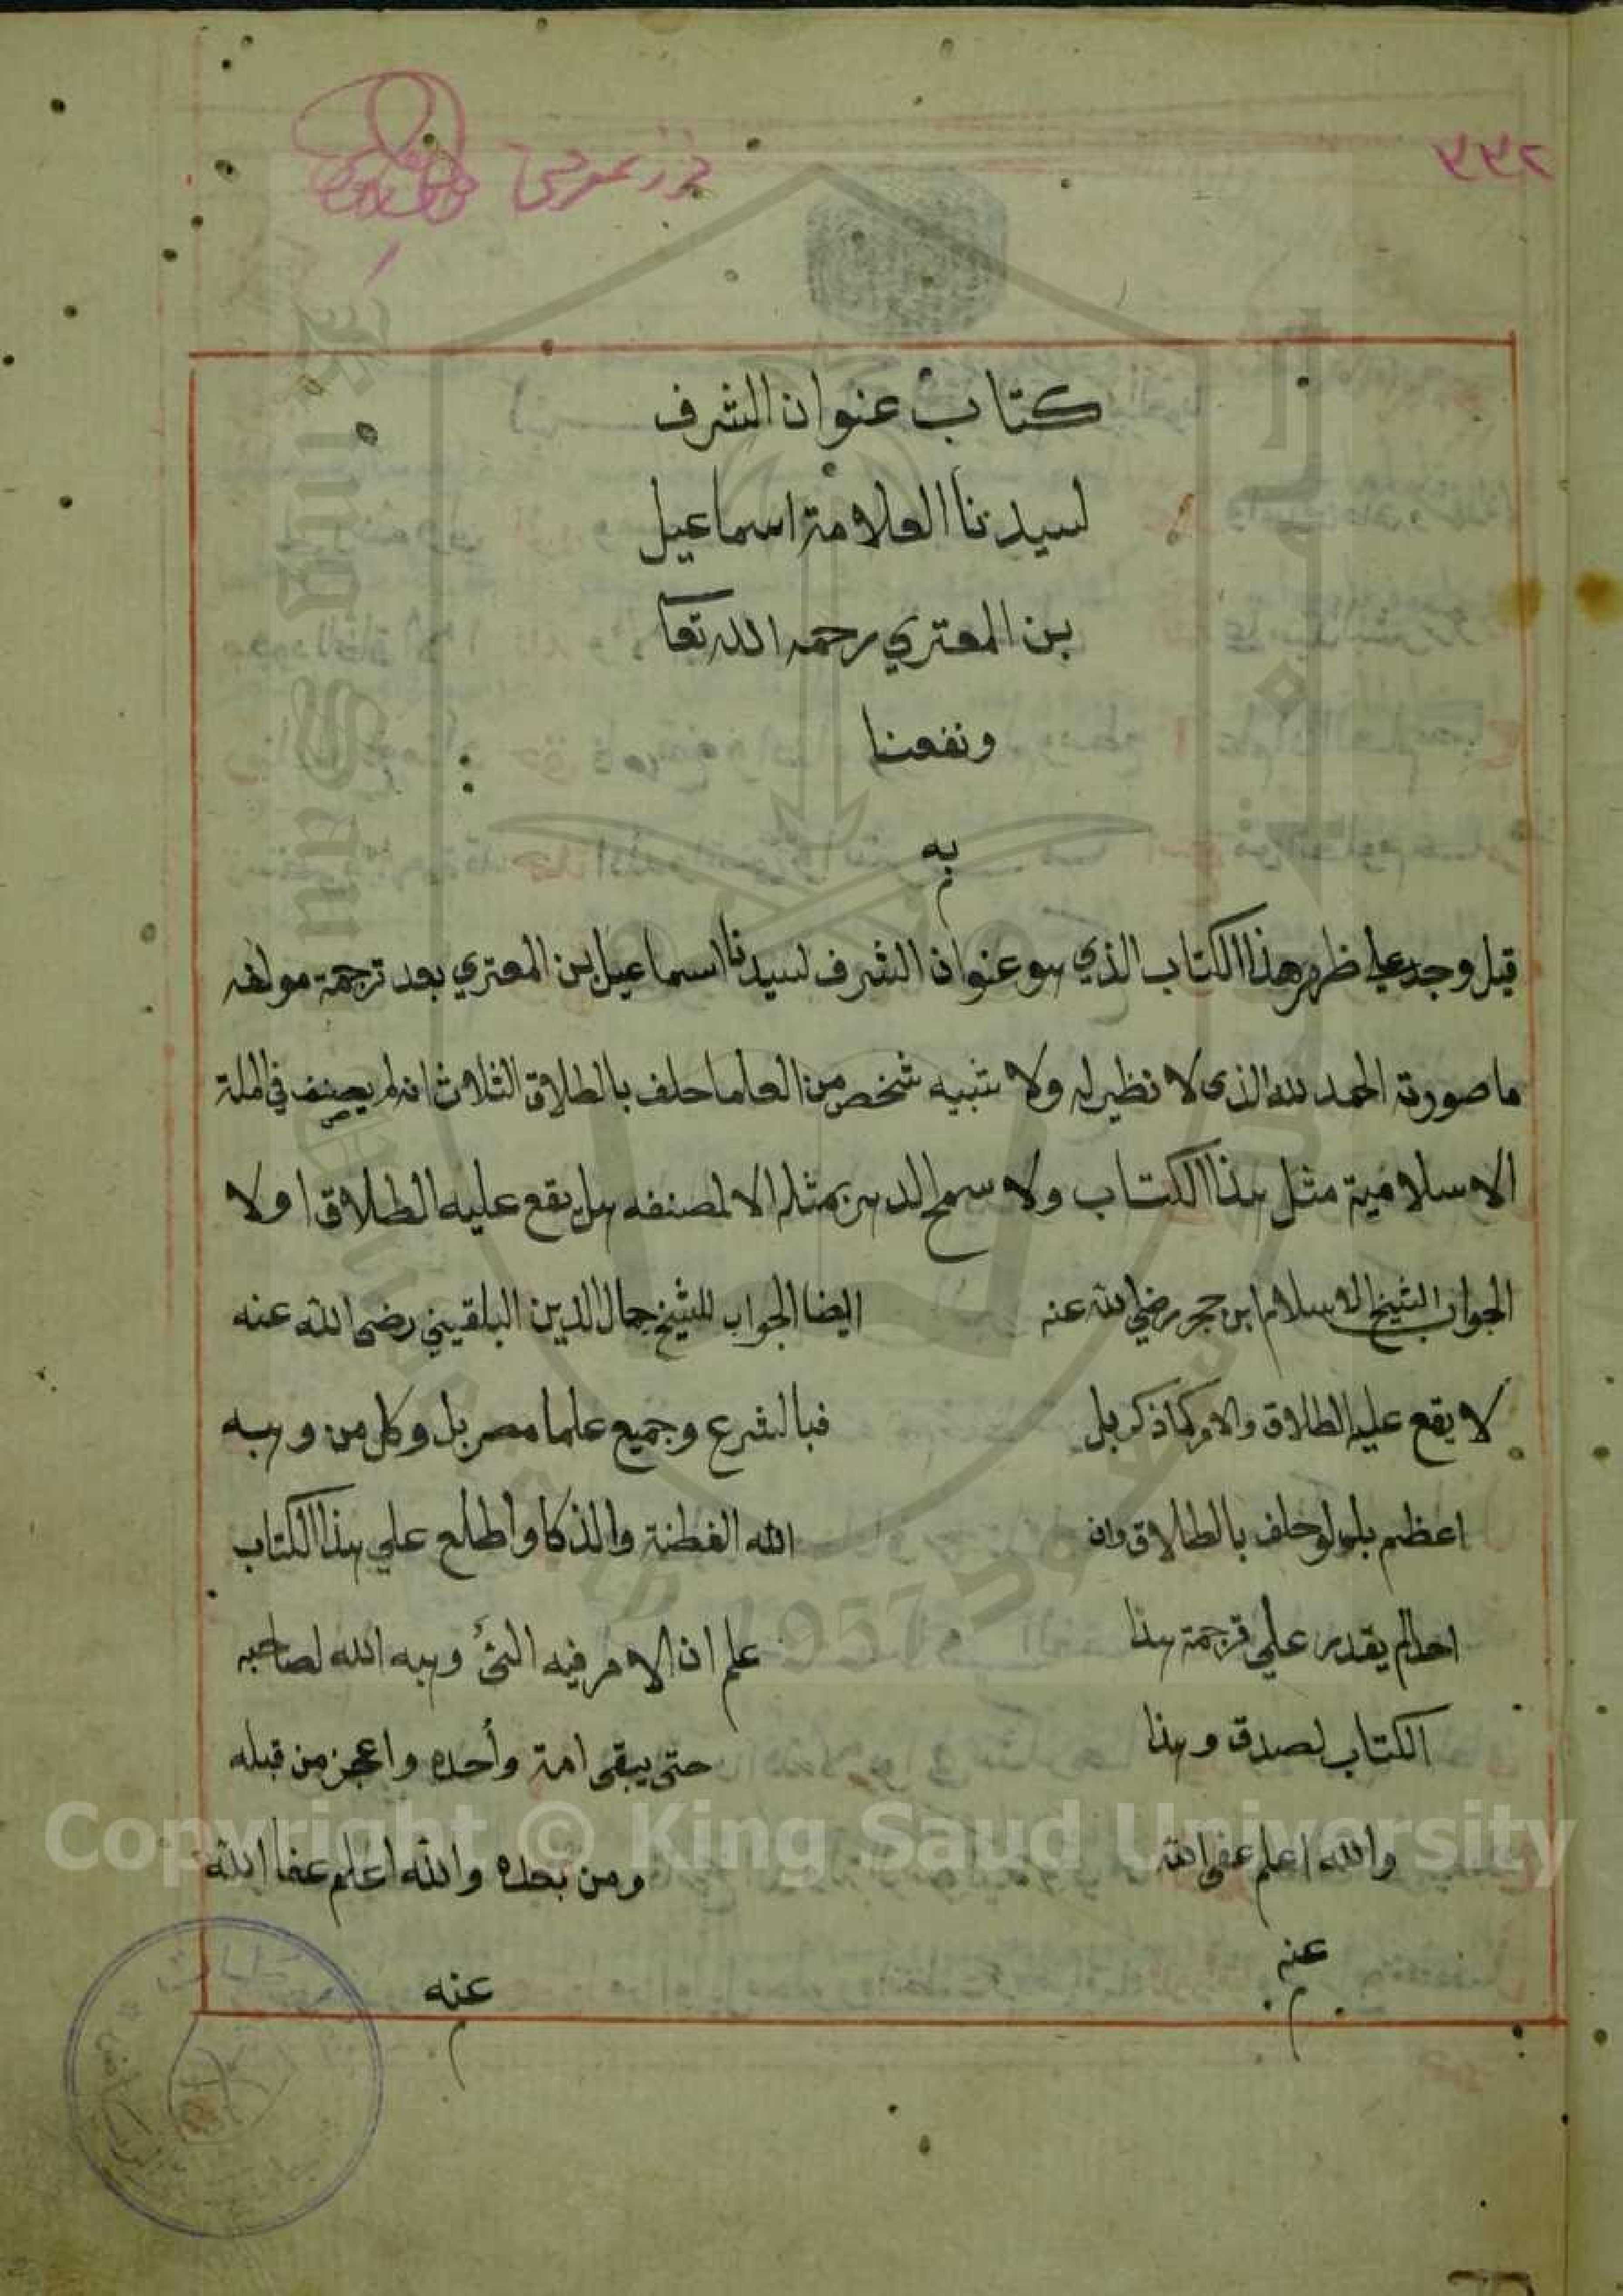 كتاب عنوان الشرف
لسيدنا العلامة اسماعيل
بن المقتري رحمه الله تعا
ونفعنا
به
قيل وجد علي ظهر هذا الكتاب الذي هو عنوان الشرف لسيدنا اسماعيل بن المقتري بعد ترجمة مولفه
ما صورته الحمد لله الذى لا نظير له ولا شبيه شخص من العلما حلف بالطلاق الثلاث انه لم يصنف في الملة
الاسلامية مثل هذا الكتاب ولا سمح الدهر بمثله الا لمصنفه هل يقع عليه الطلاق او لا
الجواب الشيخ الاسلام ابن حجر رضي الله عنه
لا يقع عليه الطلاق والامر كما ذكر بل
اعظم بل لو حلف بالطلاق وان
احدا لم يقدر علي ترجمة هذا
الكتاب لصدق وهذا
والله اعلم عفى الله
عنه
ايضا الجواب للشيخ جمال الدين البلقيني رضى الله عنه
فبالشرع وجميع علما مصر بل وكل من وهبه
الله الفطنة والذكا واطلع علي هذا الكتاب
علم ان الامر فيه الشئ وهبه الله لصاحبه
حتى يبقى امة وأحده واعجز من قبله
ومن بعده والله اعلم عفا الله
عنه
Copyright © King Saud University
1957